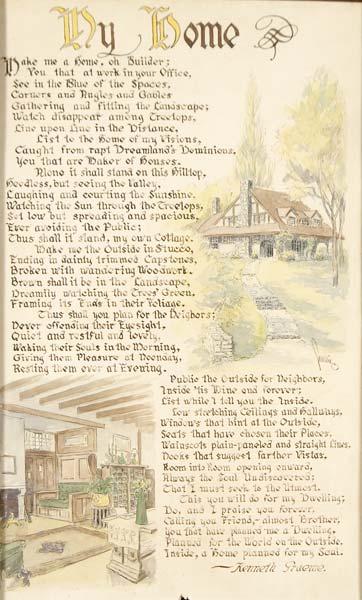 My Home
Make me a Home, oh Builder;
You that at work in your Office,
See in the Blue of the Spaces,
Corners and Angles and Gables
Gathering and fitting the Landscape;
Watch disappear among Treetops,
Line upon Line in the Distance.
List to the Home of my Visions,
Caught from rapt Dreamland's Dominions,
You that are Maker of Houses.
Alone it shall stand on this Hilltop,
Heedless, but seeing the Valley,
Laughing and courting the Sunshine.
Watching the Sun through the Treetops,
Set low but spreading and spacious,
Ever avoiding the Public;
Thus shall it stand, my own Cottage.
Make me the Outside in Stucco,
Ending in dainty trimmed Capstones,
Broken with wandering Woodwork.
Brown shall it be in the Landscape,
Dreamily watching the Trees' Green,
Framing its Ends in their Foliage.
Thus shall you plan for the Neighbors;
Never offending their Eyesight,
Quiet and restful and lovely,
Waking their Souls in the Morning,
Giving them Pleasure at Noonday,
Resting them over at Evening.
Public the Outside for Neighbors,
Inside 'tis Mine and forever;
List while I tell you the Inside.
Low stretching Ceilings and Hallways,
Windows that hint at the Outside,
Seats that have chosen their Places,
Wainscots plain-paneled and straight Lines.
Nooks that suggest farther Vistas,
Room into Room opening onward,
Always the Soul Undiscovered;
That I must seek to the Utmost.
This you will do for my Dwelling;
Do, and I praise you forever,
Calling you Friend,- almost Brother,
You that have planned me a Dwelling,
Planned for the World on the Outside,
Inside, a Home planned for my Soul.
— Kenneth Graeme.